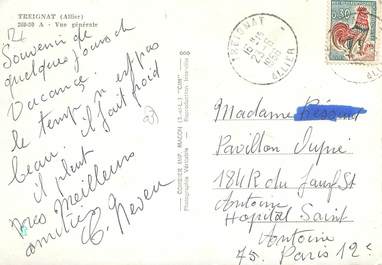 TREIGNAT (Allier)
260-30 A - Vue générale
Souvenir de
quelques jours de
Vacance.
le temps n'est pas
beau. il fait froid
il pleut
mes Meilleurs
amitiés
COMBIER IMP. MACON (S.-&-L.) "CIM"
Photographie Véritable - Reproduction Interdite
TREIGNAT
ALLIER
0,30
Madame
Pavillon
184 R du faubg St
Antoine
Hopital Saint
Antoine
75. Paris 12e